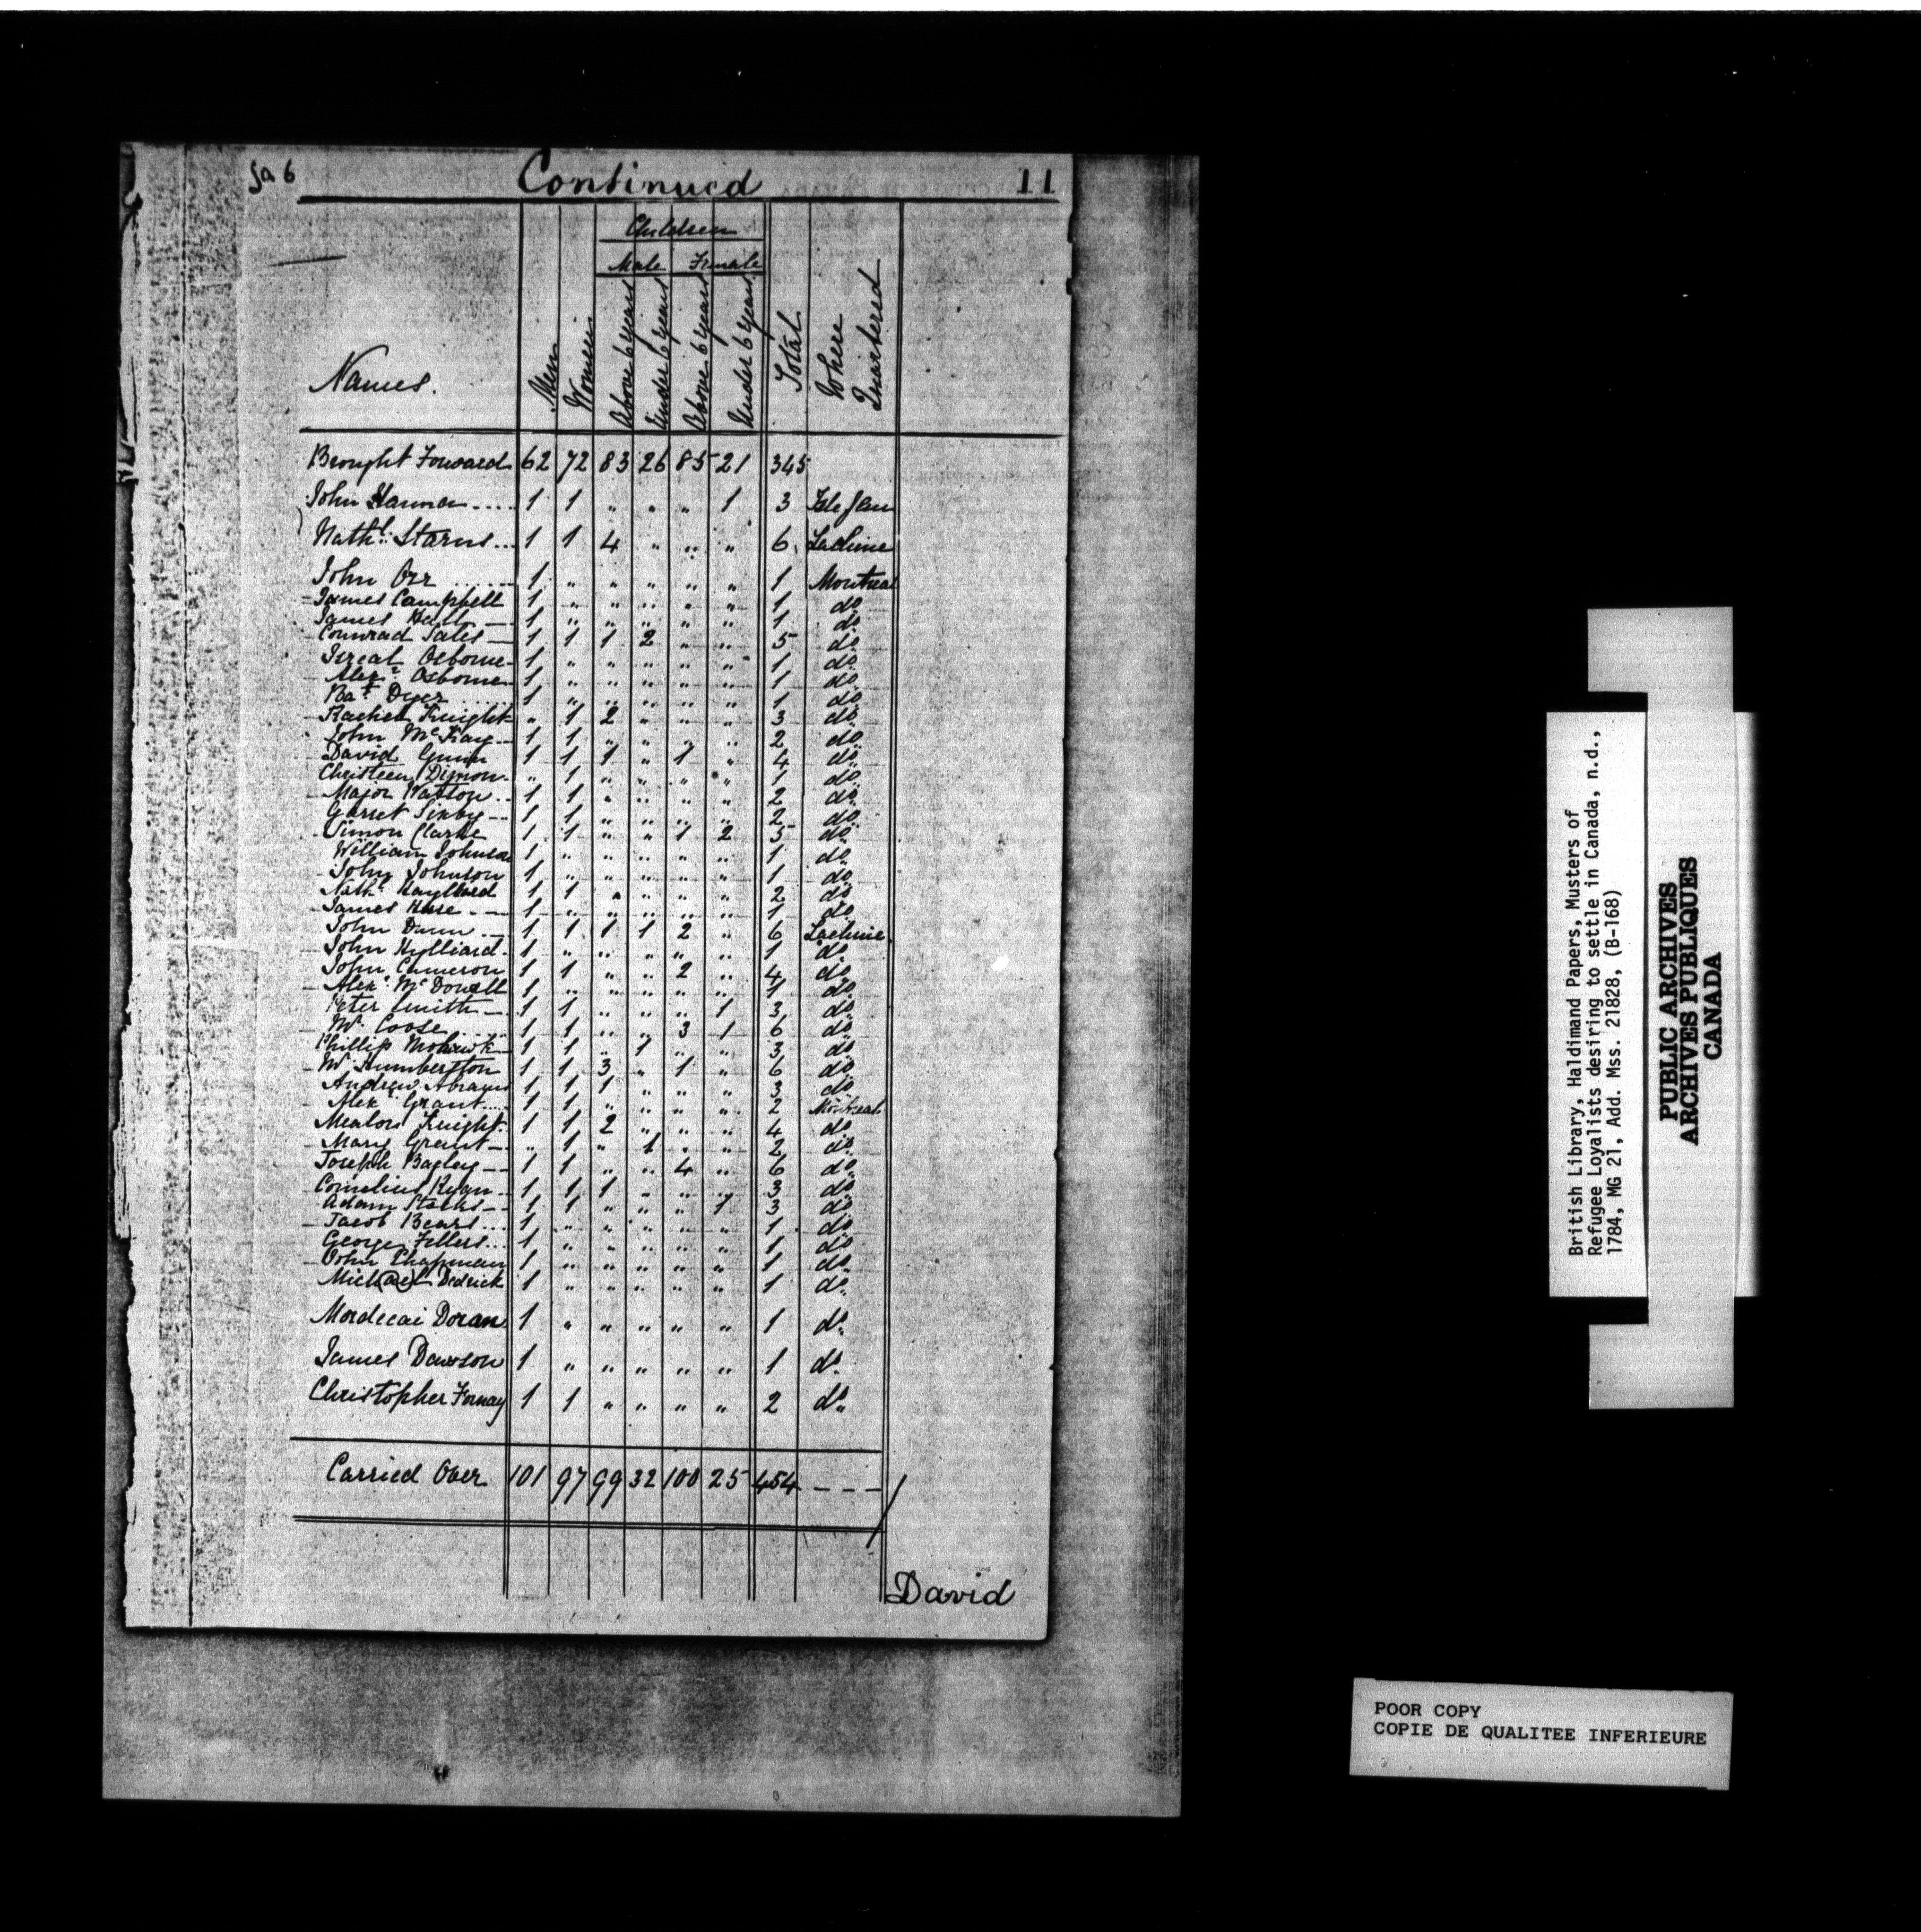 fa 6 Continued 11
Children
Male Female
Names. Men Women Above 6 Years Under 6 Years Above 6 Years Under 6 Years Total Where Quartered
Brought Forward 62 72 83 26 85 21 345
John Hanna .... 1 1 " " " 1 3 Isle Jean
Nathl. Starns... 1 1 4 " " " 6 Lachine
John Orr ...... 1 " " " " " 1 Montreal
James Campbell 1 " " " " " 1 do
James Hall 1 " " " " " 1 do
Connrad Sales 1 1 1 2 " " 5 do
Isreal Osborne 1 " " " " " 1 do
Alexr. Osborne 1 " " " " " 1 do
Bat. Dyer 1 " " " " " 1 do
Rachel Knight " 1 2 " " " 3 do
John McKay 1 1 " " " " 2 do
David Gunn 1 1 1 " 1 " 4 do
Christeen Dimon " 1 " " " " 1 do
Major Watson 1 1 " " " " 2 do
Garret Sixby 1 1 " " " " 2 do
Simon Clarke 1 1 " " 1 2 5 do
William Johnson 1 " " " " " 1 do
John Johnson 1 " " " " " 1 do
Nathl. 1 1 " " " " 2 do
James Huse 1 " " " " " 1 do
John Dunn 1 1 1 1 2 " 6 Lachine
John Hylliard 1 " " " " " 1 do
John Cameron 1 1 " " 2 " 4 do
Alexr. McDonell 1 " " " " " 1 do
Peter Smith 1 1 " " " 1 3 do
Wm. Coose 1 1 " " 3 1 6 do
Phillip Mohawk 1 1 " 1 " " 3 do
Wm. Humberston 1 1 3 " 1 " 6 do
Andrew Abrams 1 1 1 " " " 3 do
Alexr. Grant.... 1 1 " " " " 2 Montreal
Mealon Knight 1 1 2 " " " 4 do
Mary Grant " 1 " 1 " " 2 do
Joseph Bagley 1 1 " " 4 " 6 do
Cornelius Ryan 1 1 1 " " " 3 do
Adam Stocks 1 1 " " " 1 3 do
Jacob Bears... 1 " " " " " 1 do
George Fellers... 1 " " " " " 1 do
John Chapman 1 " " " " " 1 do
Michael Dedrick 1 " " " " " 1 do
Mordecai Doran 1 " " " " " 1 do
James Dawson 1 " " " " " 1 do
Christopher Fornay 1 1 " " " " 2 do
Carried Over 101 97 99 32 100 25 454 - - -
David
British Library, Haldimand Papers, Musters of
Refugee Loyalists desiring to settle in Canada, n.d.,
1784, MG 21, Add. Mss. 21828, (B-168)
PUBLIC ARCHIVES
ARCHIVES PUBLIQUES
CANADA
POOR COPY
COPIE DE QUALITEE INFERIEURE